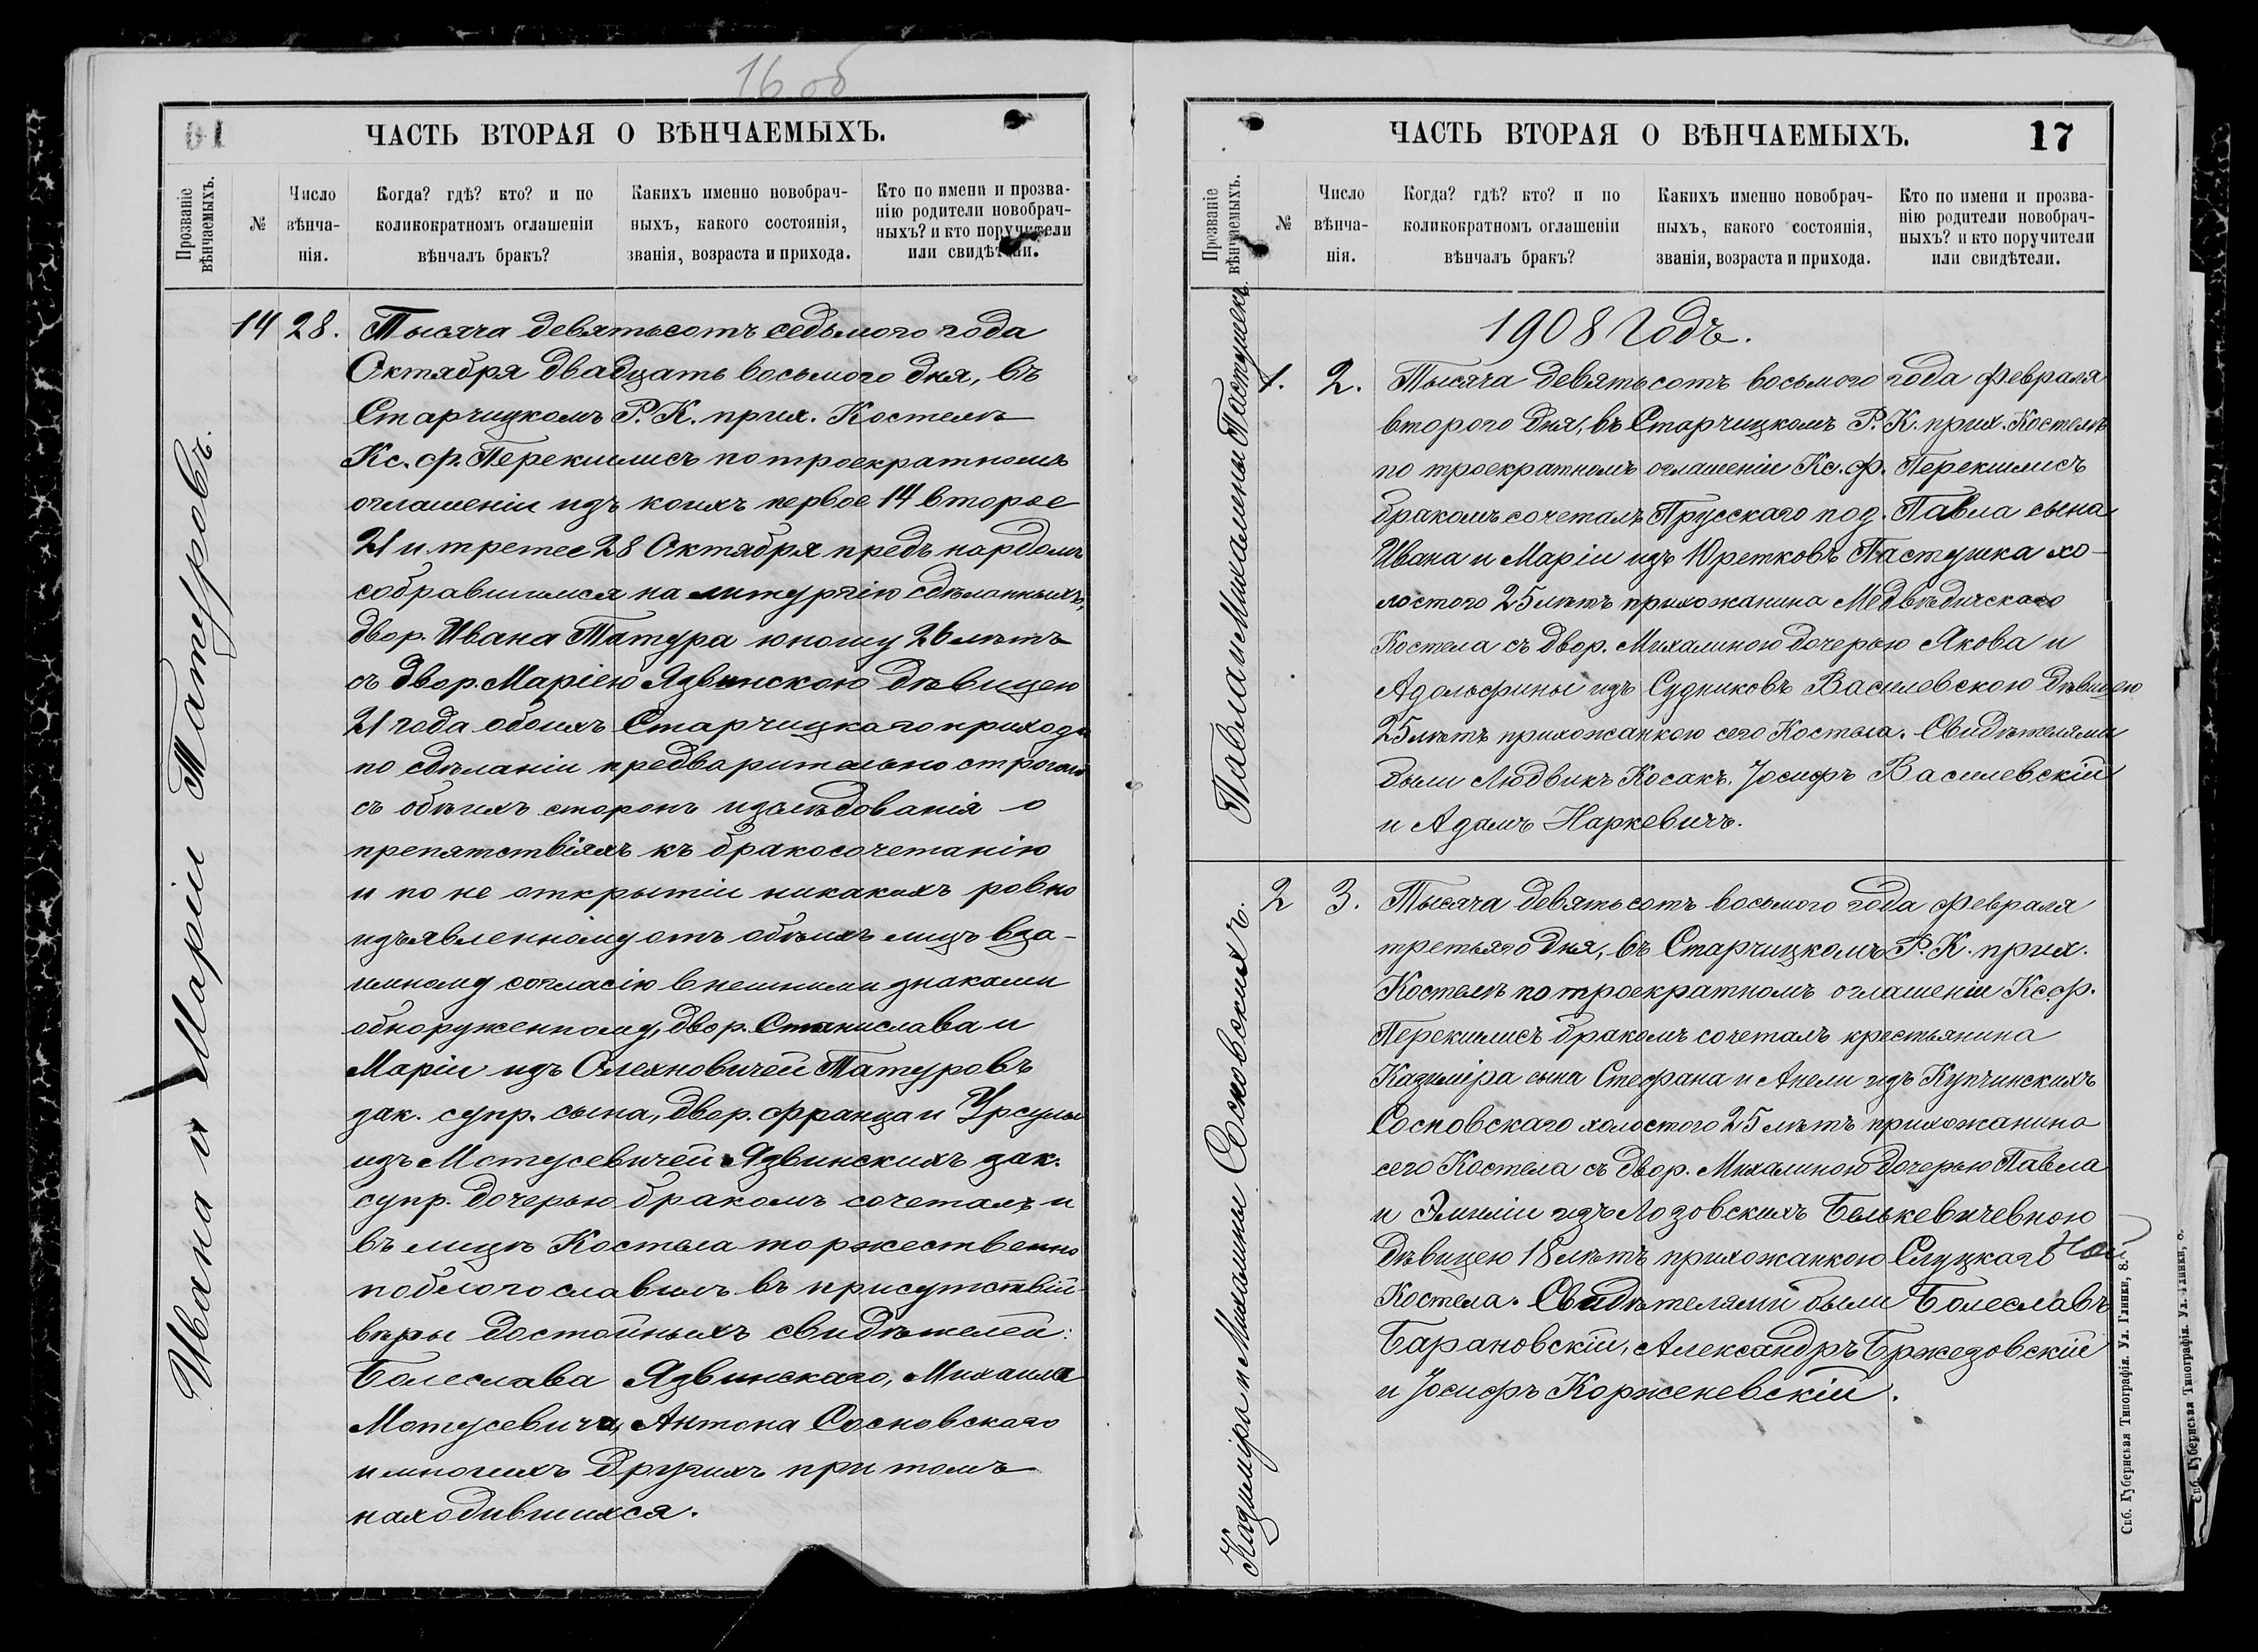 16 об
ЧАСТЬ ВТОРАЯ О ВѢНЧАЕМЫХЪ.
Прозваніе вѣнчаемыхъ.
№
Число вѣнча-нія.
Когда? гдѣ? кто? и по коликократномъ оглашеніи вѣнчалъ бракъ?
Какихъ именно новобрач-ныхъ, какого состоянія, званія, возраста и прихода.
Кто по имени и прозва-нію родители новобрач-ныхъ? и кто поручители или свидѣтели.
Ивана и Маріи Татуровъ.
14 28. Тысяча девятьсотъ седьмого года
Октября двадцать восьмого дня, въ
Старчицкомъ Р. К. прих. Костелѣ
Кс. ф. Перекшлисъ по троекратномъ
оглашеніи изъ коихъ первое 14 второе
21 и третее 28 Октября предъ нардомъ
собравшимся на литургію сдѣланныхъ,
двор. Ивана Татура юношу 26 лѣтъ
съ двор. Маріею Язвинскою дѣвицею
21 года обоихъ Старчицкаго прихода
по сдѣланіи предварительно строгаго
съ обѣихъ сторонъ изслѣдованія о
препятствіяхъ къ бракосочетанію
и по не открытіи никакихъ ровно
изъявленному отъ обѣихъ лицъ вза-
имному согласію внешними знаками
обноруженному, двор. Станислава и
Маріи изъ Олехновичей Татуровъ
зак. супр. сына, двор. Франца и Урсулы
изъ Мотусевичей Язвинскихъ зак.
супр. дочерью бракомъ сочеталъ и
въ лицѣ Костела торжественно
поблогославилъ въ присутствіи
вѣры достойныхъ свидѣтелей:
Болеслава Язвинскаго, Михаила
Мотусевича, Антона Сосновскаго
и многихъ другихъ при томъ
находившихся.
ЧАСТЬ ВТОРАЯ О ВѢНЧАЕМЫХЪ.
17
Прозваніе вѣнчаемыхъ.
№
Число вѣнча-нія.
Когда? гдѣ? кто? и по коликократномъ оглашеніи вѣнчалъ бракъ?
Какихъ именно новобрач-ныхъ, какого состоянія, званія, возраста и прихода.
Кто по имени и прозва-нію родители новобрач-ныхъ? и кто поручители или свидѣтели.
1908 Годъ.
Павла и Михалины Пастушекъ
1. 2. Тысяча девятьсотъ восьмого года февраля
второго дня, въ Старчицкомъ Р. К. прих. Костелѣ
по троекратномъ оглашеніи Кс. ф. Перекшлисъ
бракомъ сочеталъ Прусскаго под. Павла сына
Ивана и Маріи изъ Юретковъ Пастушка хо-
лостого 25 лѣтъ прихожанина Медвѣдичскаго
Костела съ двор. Михалиною дочерью Якова и
Адольфины изъ Судниковъ Василевскою дѣвицею
25 лѣтъ прихожанкою сего Костела. Свидѣтелями
были Людвикъ Косакъ, Іосифъ Василевскій
и Адамъ Наркевичъ.
Казиміра и Михалины Сосновскихъ.
2 3. Тысяча девятьсотъ восьмого года февраля
третьяго дня, въ Старчицкомъ Р. К. прих.
Костелѣ по троекратномъ оглашеніи Кс. ф.
Перекшлисъ бракомъ сочеталъ крестьянина
Казиміра сына Стефана и Анели изъ Купчинскихъ
Сосновскаго холостого 25 лѣтъ прихожанина
сего Костела съ двор. Михалиною дочерью Павла
и Эмиліи изъ Лозовскихъ Болькевичевною
дѣвицею 18 лѣтъ прихожанкою Слуцкаго
Костела. Свидѣтелями были Болеславъ
Барановскій, Александръ Бржезовскій
и Іосифъ Корженевскій.
Спб. Губернская Типографія. Ул. Глинки, 8.
Спб. Губернская Типографія. Ул. Глинки, 8.